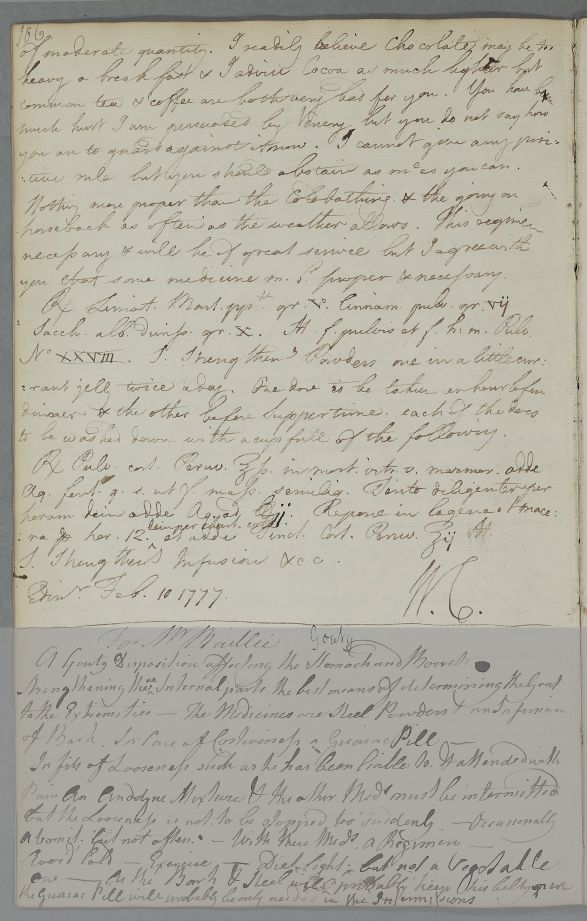 186
of moderate quantity. I readily believe Chocolate may be too
heavy a breakfast & I advise Cocoa as much lighter but
common tea & coffee are both very bad for you. You have been
much hurt I am persuaded by Venery but you do not say how
you are to guard against it now. I cannot give any posi-
:tive rule but you should abstain as mch as you can.
Nothing more proper than the Cold bathing & the going on
horseback as often as the weather allows. This regimen
necessary & will be of great service but I agree with
you that some medicine is proper & necessary.
Rx Limat. Mart. ppt gr. v. Cinnam. pulv. gr. vij
Sacch. alb. duriss. gr. X. M. f. pulvis et f. h. m. Pulv.
No XXVIII. S. Strengthens Powders one in a little cur:
:rant jelly twice a day. One dose to be taken an hour before
dinner & the other before Supper time. each of the doses
to be washed down with a cup full of the following.
Rx Pulv. cort. Peruv. ℥ſs. in mort. vitr. v. marmor. adde
Aq. font. q. s. ut f. massa semiliq. Tinto diligenter per
horam dein adde Aq. Repone in lagena et mace:
ra p. hor. 12. dein per chart. et adde Tinct. Cort. Peruv. ℥ij M
S. Strengthens Infusion &c c.
Edinr Feb. 10 1777. W. C.
For Mr Baillie Gouty
A Gouty Disposition affecting the Stomach and Bowels
strengthening these Internal parts the best means of determining the Gout
to the Extremities — The Medicines are Steel Powders & an Infusion
of Bark. In Case of Costiveness a Guaiac Pill —
In fits of Looseness such as he has been liable to, & attended with
Pain An Anodyne Mixture & the other Meds must be intermitted
but the Looseness is not to be stopped too suddenly — Occasionally
a Vomit. but not often. — With these Meds a Regimen —
Avoid Cold — Exercise — Diet light. but not a Vegetable
one — As the Bark & Steel will probably keep his belly open
the Guaiac Pill will probably be only needed in the Intermissions